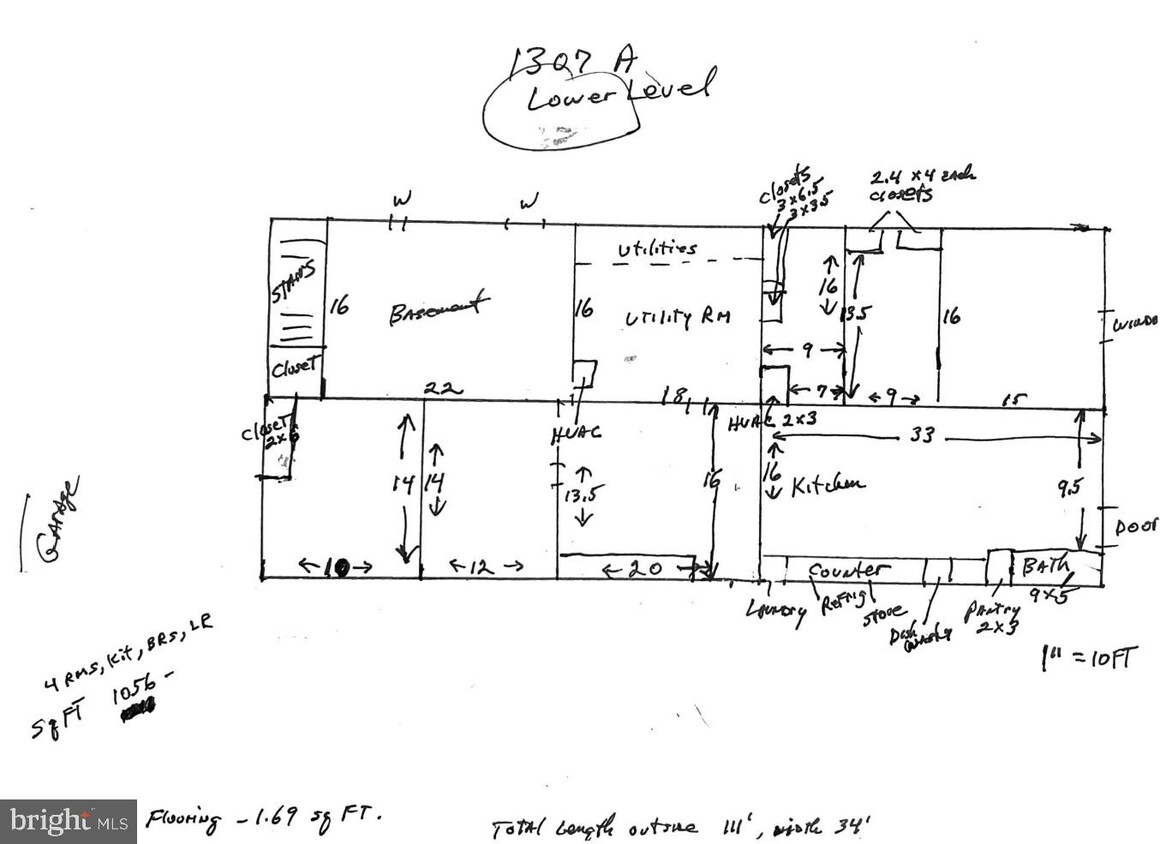 1307 A
Lower Level
W
W
closets
3x6.5
3x3.5
2.4 x 4 each
closets
STAIRS
16
Basement
utilities
16
utility RM
16
13.5
16
WINDO
9
Closet
22
18
7
9
15
closet
2x6
HVAC
HVAC 2x3
33
14
14
13.5
16
16
Kitchen
9.5
GARAGE
DOOR
10
12
20
Counter
BATH
9x5
Laundry
Refrig
stove
Dish
washer
Pantry
2x3
1" = 10FT
4 RMS, Kit, BRS, LR
Sq FT 1056 -
bright MLS
Flooring - 1.69 sq FT.
Total Length outside 111', width 34'